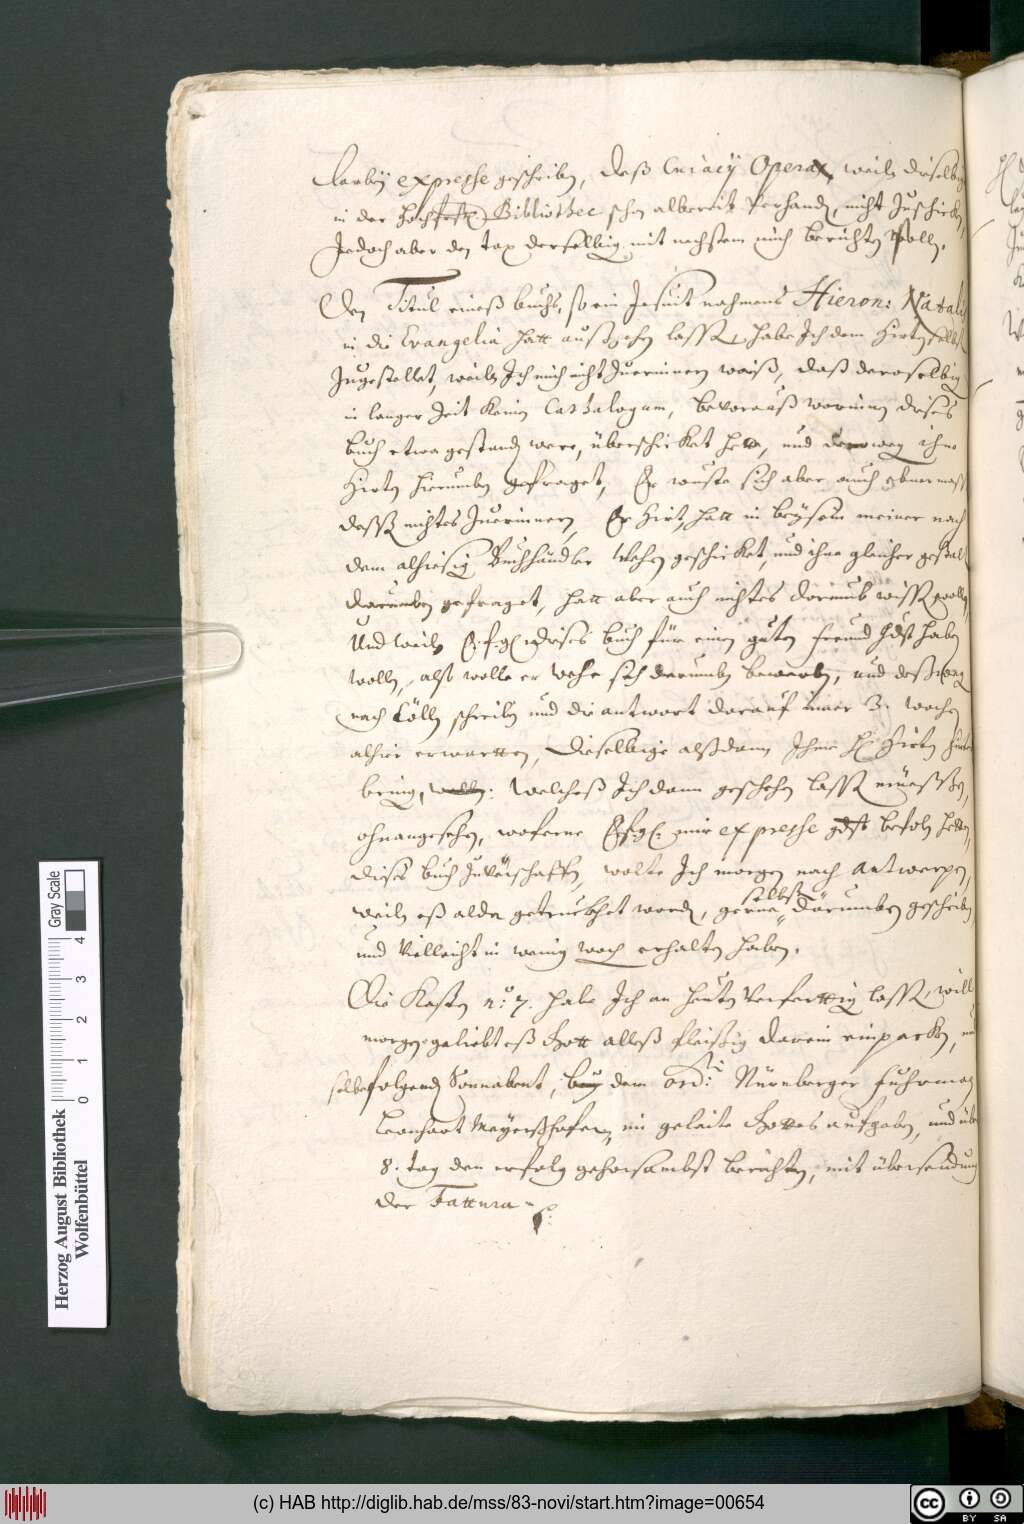 darbey expresse geschriben, daß Curiacij Opera, weiln dieselbig
in der Hochfürstl: Bibliothec schon albereit verhanden, nicht Zuschicken,
Jedoch aber den tax derselbigen mit nechstem mich berichten wolle.
Den Titul eineß buchs, so ein Jesuit nahmens Hieron: Natalis
in die Evangelia hatt außgehen lassen, habe Ich dem Hirten selbst
Zugestellet, weiln Ich mich nicht Zuerinnern waiß, daß deroselbig
in langer Zeit keinen Cathalogum, bevorauß worinnen dieses
buch etwa gestanden were, überschicket hette, und ihne
Hirten hierumben gefraget, Er wuste sich aber auch ebnermaß
dessen nichtes Zuerinnern, Er Hirt, hatt in beysein meiner nach
dem alhiesigen Buchhändler Wehen geschicket, und ihne gleicher gestalt
darumben gefraget, hatt aber auch nichtes darumb wissen wollen,
Und weiln E. f. g. dieses buch für einen guten freund haben
wollen, alß wolle er Wehe sich darumben bewerben, und deßweg
nach Cölln schreiben und die antwort darauf inner 3. wochen
alhier erwartten, dieselbige alßdann Ihme H. Hirten hinder
bringen, welcheß Ich dann geschehen lassen müessen,
ohnangesehen, woferne E. f. g. mir expresse gdst befolen hetten
dieses buch Zuverschaffen, wolte Ich morgen nach Antwerpen,
weiln eß alda getruckhet worden, gerne selbst darumben geschriben
und villeicht in wenig woch erhalten haben.
Die Kasten n.° 7. habe Ich an heuten verferttigen lassen, will
morgen geliebt eß Gott alleß fleißig darein einpacken,
selbe folgenden Sonnabent, dem ord.i Nürnberger fuhrman
Leonhart Mayershofer, im geleite Gottes aufgeben, und über
8. tag den erfolg gehorsambst berichten, mit übersendung
der Fattura